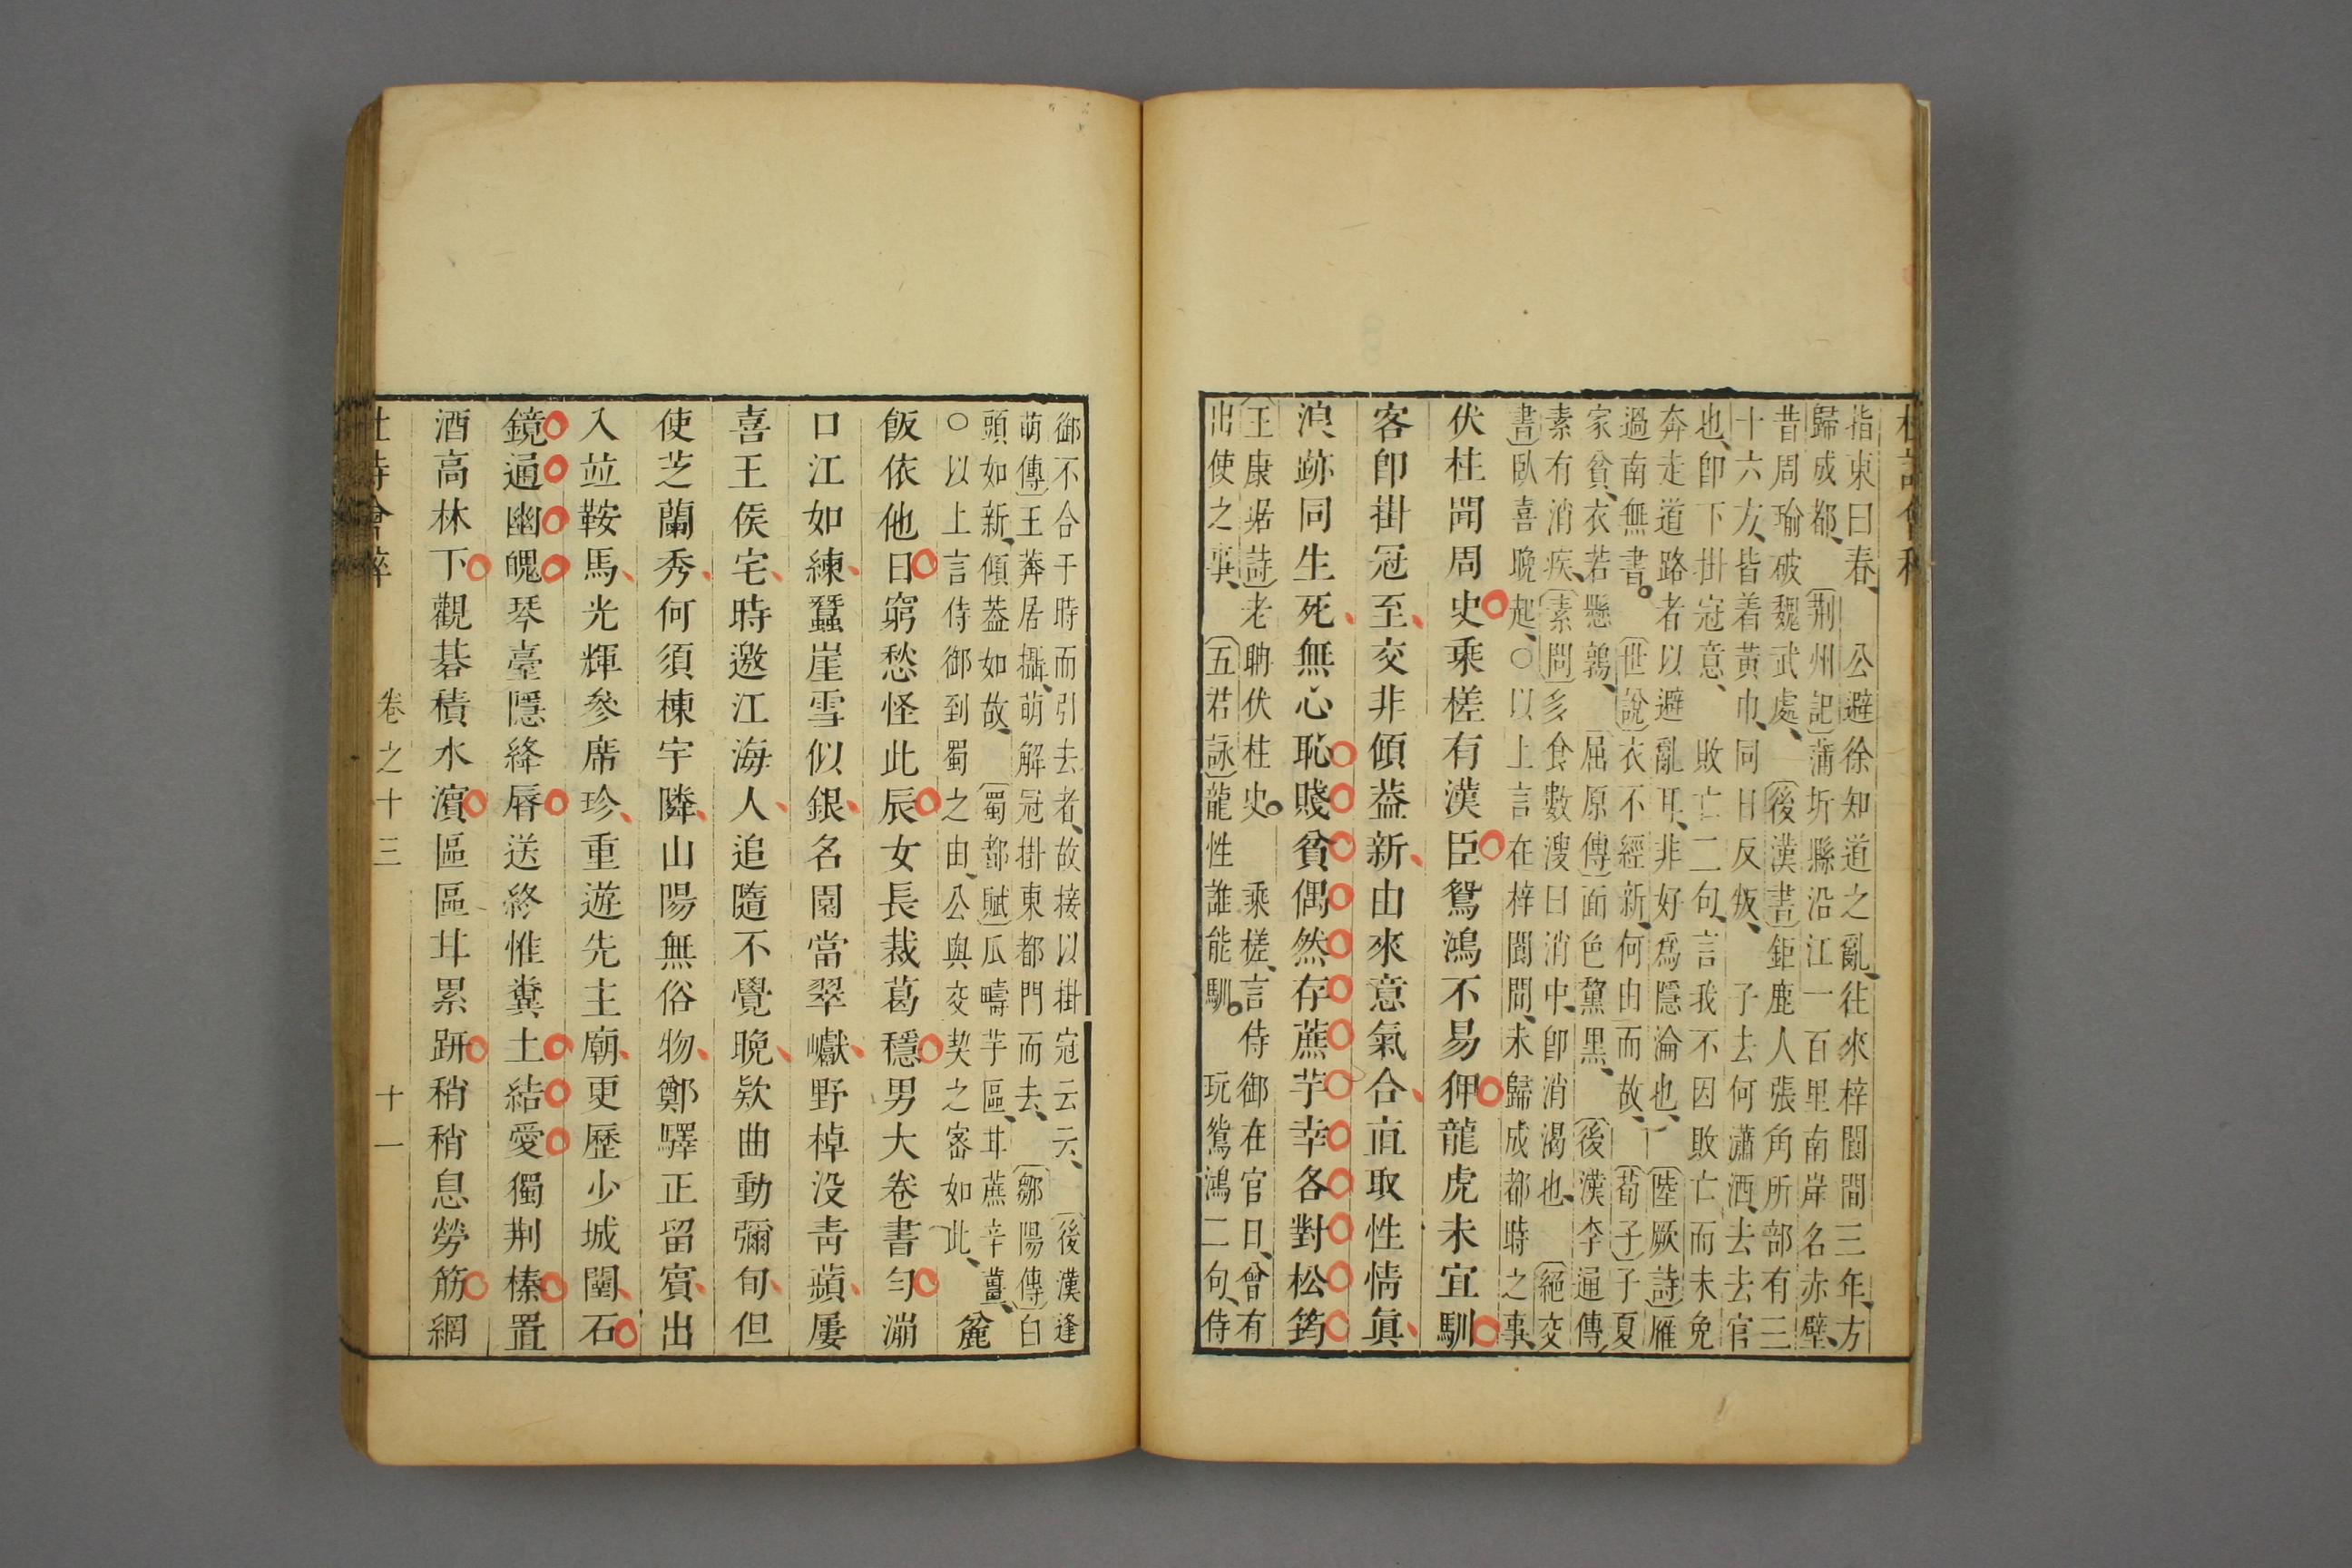 指東曰春、　公避徐知道之亂、往來梓閬間三年、方
歸成都、〔荆州記〕蒲圻縣沿江一百里南岸名赤壁、
昔周瑜破魏武處、〔後漢書〕鉅鹿人張角所部有三
十六方、皆着黄巾、同日反叛、　子去何瀟洒、去去官
也、卽下掛冠意、　敗亡二句、言我不因敗亡而未免
奔走道路者以避亂耳、非好爲隱淪也、〔陸厥詩〕雁
過南無書。〔世說〕衣不經新、何由而故、〔荀子〕子夏
家貧、衣若懸鶉、〔屈原傳〕面色黧黑、〔後漢李通傳〕
素有消疾、〔素問〕多食數溲曰消中、卽消渴也、〔絕交
書〕臥喜晚起、○以上言在梓閬間、未歸成都時之事、
伏柱聞周史乘槎有漢臣鴛鴻不易狎龍虎未宜馴
客卽掛冠至交非傾葢新由來意氣合直取性情眞
浪跡同生死無心恥賤貧偶然存蔗芋幸各對松筠
〔王康琚詩〕老聃伏柱史。　乘槎、言侍御在官日、曾有
出使之事、〔五君詠〕龍性誰能馴。　玩鴛鴻二句、侍
御不合于時而引去者、故接以掛冠云云、〔後漢逢
萌傳〕王莽居攝、萌解冠掛東都門而去、〔鄒陽傳〕白
頭如新、傾葢如故、〔蜀都賦〕瓜疇芋區、甘蔗辛薑、
○以上言侍御到蜀之由、公與交契之密如此、　麄
飯依他日窮愁怪此辰女長裁葛穩男大卷書勻漰
口江如練蠶崖雪似銀名園當翠巘野棹沒青蘋屢
喜王侯宅時邀江海人追隨不覺晚欵曲動彌旬但
使芝蘭秀何須棟宇隣山陽無俗物鄭驛正留賓出
入並鞍馬光輝參席珍重遊先主廟更歷少城闉石
鏡通幽魄琴臺隱絳脣送終惟糞土結愛獨荆榛置
酒高林下觀棊積水濱區區甘累趼稍稍息勞筋網
杜詩會稡　卷之十三　十一